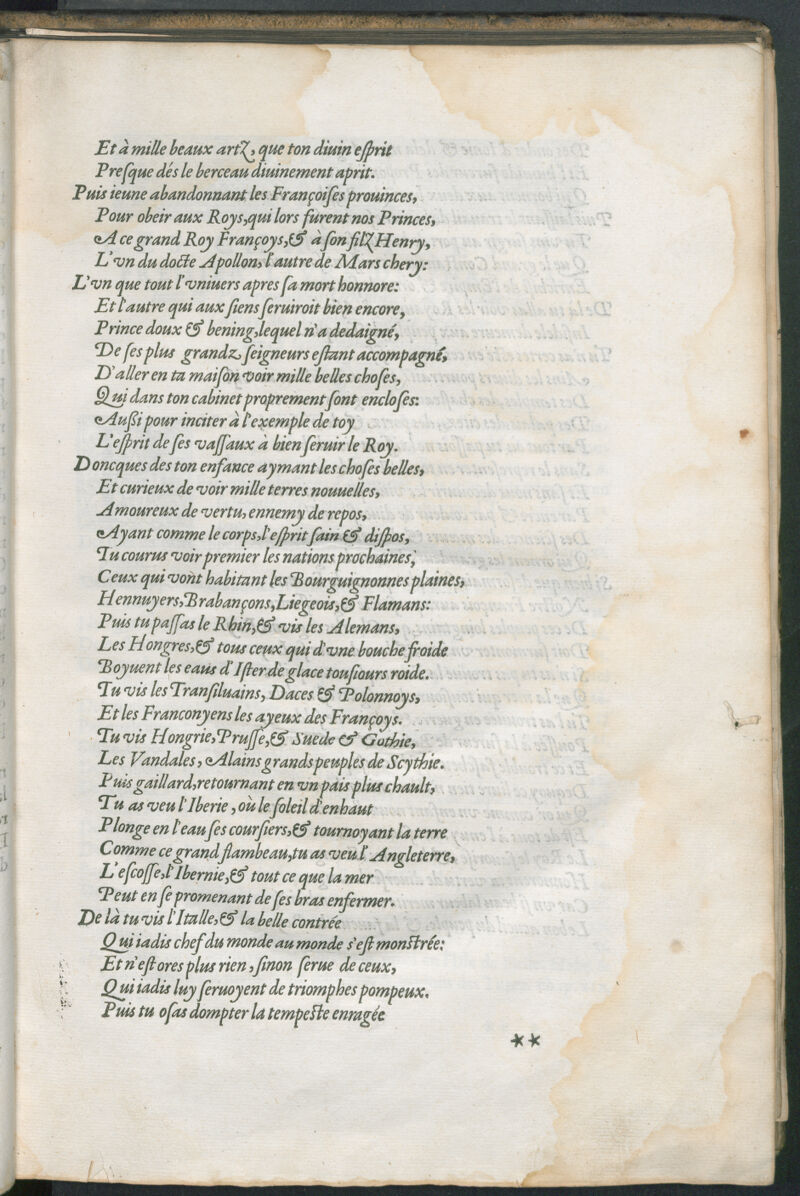 Et à mille beaux artz, que ton diuin eſprit
Preſque dés le berceau diuinement aprit.
Puis ieune abandonnant les Françoiſes prouinces,
Pour obeir aux Roys,qui lors furent nos Princes,
A ce grand Roy Françoys,& à ſon filz Henry,
L'vn du docte Apollon, l'autre de Mars chery:
L'vn que tout l'vniuers apres ſa mort honnore:
Et l'autre qui aux ſiens ſeruiroit bien encore,
Prince doux & bening,lequel n'a dedaigné,
De ſes plus grandz, ſeigneurs eſtant accompagné,
D'aller en ta maiſon voir mille belles choſes,
Qui dans ton cabinet proprement ſont encloſes:
Außi pour inciter à l'exemple de toy
L'eſprit de ſes vaſſaux à bien ſeruir le Roy.
Doncques des ton enfance aymant les choſes belles,
Et curieux de voir mille terres nouuelles,
Amoureux de vertu, ennemy de repos,
Ayant comme le corps,l'eſprit ſain & diſpos,
Tu courus voir premier les nations prochaines,
Ceux qui vont habitant les Bourguignonnes plaines,
Hennuyers,Brabançons,Liegeois,& Flamans:
Puis tu paſſas le Rhin,& vis les Alemans,
Les Hongres,& tous ceux qui d'vne bouche froide
Boyuent les eaus d'Iſter de glace touſiours roide.
Tu vis les Tranſiluains, Daces & Polonnoys,
Et les Franconyens les ayeux des Françoys.
Tu vis Hongrie,Pruſſe,& Suede & Gothie,
Les Vandales, Alains grands peuples de Scythie.
Puis gaillard,retournant en vn païs plus chault,
Tu as veu l'Iberie, où le ſoleil d'enhaut
Plonge en l'eau ſes courſiers,& tournoyant la terre
Comme ce grand flambeau,tu as veu l'Angleterre,
L'eſcoſſe,l'Ibernie,& tout ce que la mer
Peut en ſe promenant de ſes bras enfermer.
De là tu vis l'Italle,& la belle contrée
Qui iadis chef du monde au monde s'eſt monſtrée:
Et n'eſt ores plus rien, ſinon ſerue de ceux,
Qui iadis luy ſeruoyent de triomphes pompeux.
Puis tu oſas dompter la tempeſte enragée
**